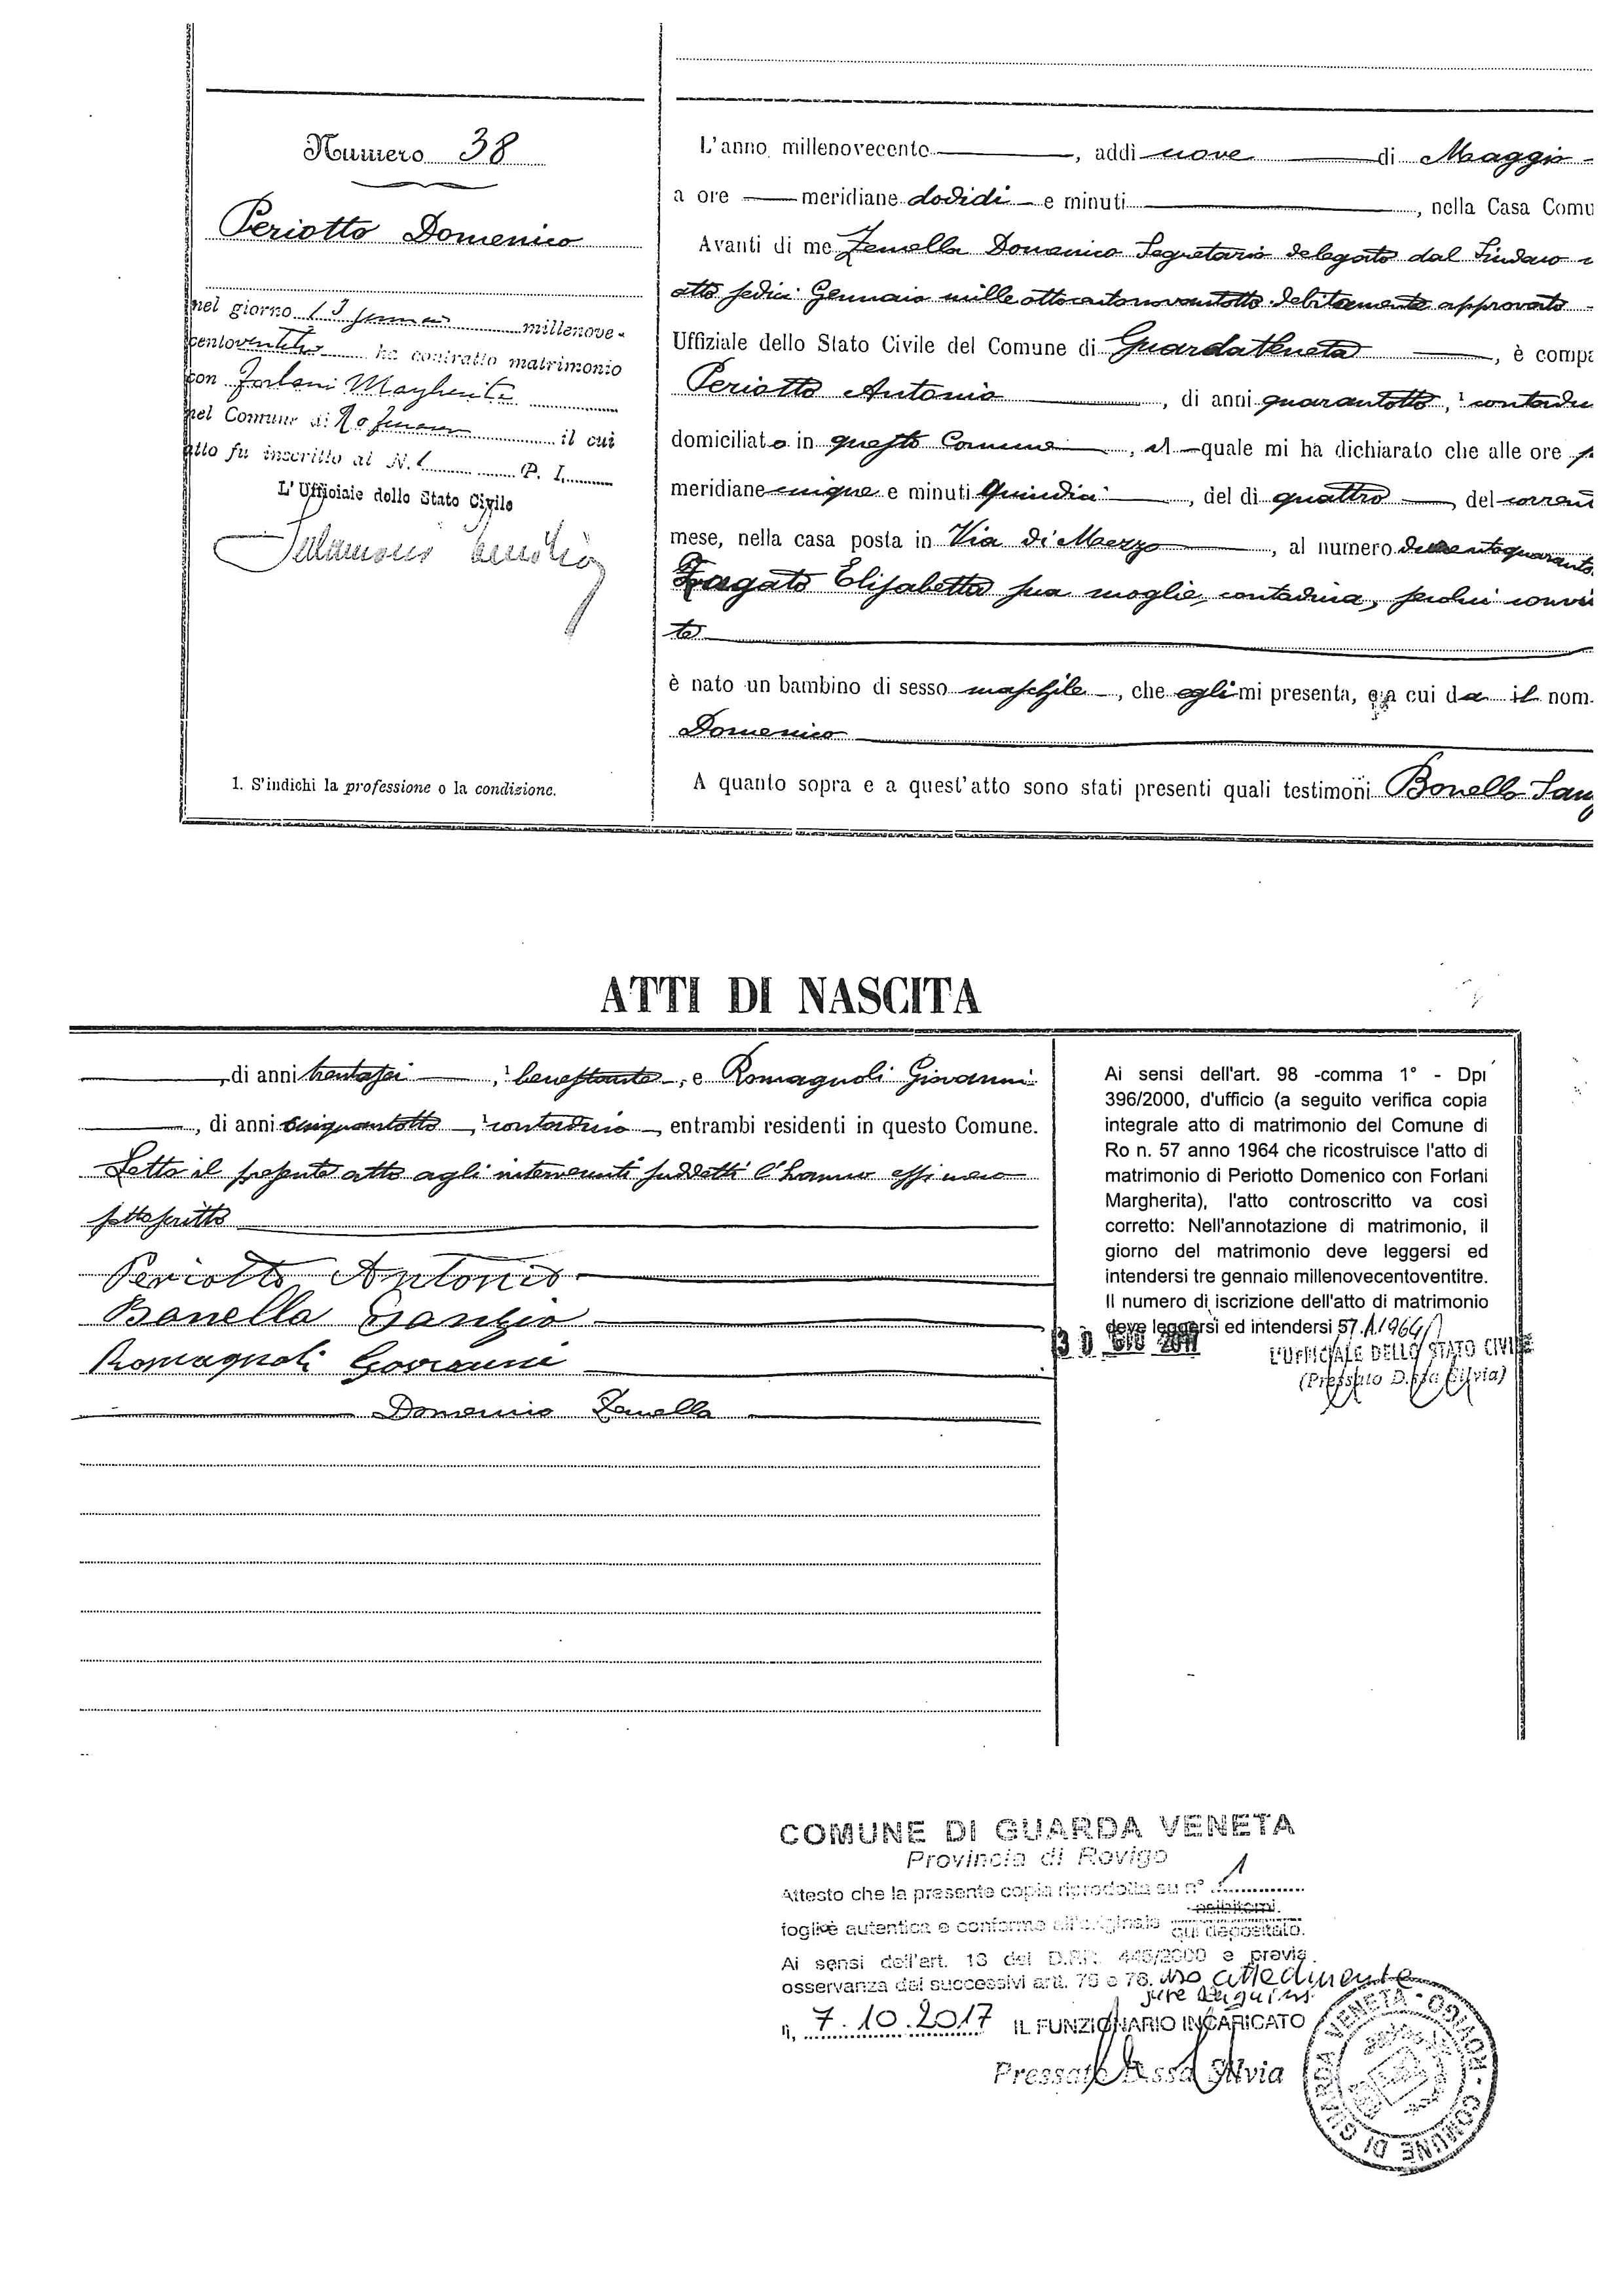 Numero 38
Periotto Domenico
nel giorno 13 millenove-
cento ha contratto matrimonio
con Forlani Margherita
nel Comune di Ro il cui
atto fu inscritto al N. P. I.
L'Uffiziale dello Stato Civile
1. S'indichi la professione o la condizione.
L'anno millenovecento, addì nove di Maggio
a ore meridiane dodici e minuti, nella Casa Comu
Avanti di me Zenella Domenico Segretario delegato dal Sindaco
atto sedici Gennaio milleottocentonovantotto debitamente approvato
Uffiziale dello Stato Civile del Comune di Guarda Veneta, è compa
Periotto Antonio, di anni quarantotto, ¹ contadi
domiciliato in questo Comune, il quale mi ha dichiarato che alle ore
meridiane cinque e minuti quindici, del dì quattro del corrent
mese, nella casa posta in Via di Mezzo, al numero
Zagato Elisabetta sua moglie, contadina, seco lui convi
te
è nato un bambino di sesso maschile, che egli mi presenta, e a cui dà il nom
Domenico
A quanto sopra e a quest'atto sono stati presenti quali testimoni Bonello San
ATTI DI NASCITA
di anni trentasei, ¹ benestante, e Romagnoli Giovanni
, di anni cinquantotto, ¹ contadino, entrambi residenti in questo Comune.
Letto il presente atto agli intervenuti suddetti l'hanno essi meco
sottoscritto
Periotto Antonio
Bonella Sanzio
Romagnoli Giovanni
Domenico Zenella
Ai sensi dell'art. 98 -comma 1° - Dpr
396/2000, d'ufficio (a seguito verifica copia
integrale atto di matrimonio del Comune di
Ro n. 57 anno 1964 che ricostruisce l'atto di
matrimonio di Periotto Domenico con Forlani
Margherita), l'atto controscritto va così
corretto: Nell'annotazione di matrimonio, il
giorno del matrimonio deve leggersi ed
intendersi tre gennaio millenovecentoventitre.
Il numero di iscrizione dell'atto di matrimonio
deve leggersi ed intendersi 57. A. 1964
30 GIU 2017
L'UFFICIALE DELLO STATO CIVILE
(Pressato D.ssa Silvia)
COMUNE DI GUARDA VENETA
Provincia di Rovigo
Attesto che la presente copia riprodotta su n° 1
foglio è autentica e conforme all'originale qui depositato.
Ai sensi dell'art. 18 del D.P.R. 445/2000 e previa
osservanza dei successivi artt. 75 e 76. uso cittadinanza
jure sanguinis
lì, 7.10.2017 IL FUNZIONARIO INCARICATO
Pressato D.ssa Silvia
COMUNE DI GUARDA VENETA - ROVIGO